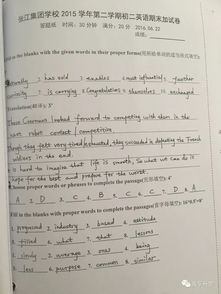 张江集团学校 2015 学年第二学期初二英语期末加试卷
答题纸 时间：30 分钟 满分：20 分 2016.06.22
成绩：
Fill in the blanks with the given words in their proper forms
naturally 2 has sold 3 enables 4 most influential 5 further
curiosity 7 is carrying 8 Congratulations 9 themselves 10 exchanged
Translation
These Germans looked forward to competing with them in the
robot contest / competition.
Though they felt very tired exhausted, they succeeded in defeating the French
soldiers in the end
hard to imagine that life is smooth, So what we can do is
hope for the best and prepare for the worst.
Choose proper words or phrases to complete the passage
A 2. D 3. C 4. B 5. C 6. C 7. D 8. A
Fill in the blanks with proper words to complete the passage
1. proposed 2. industry 3. based 4. attitude
filled 6. what 7. that 8. lessons
slowly 2. average 3. 4. being
5. less 6. purpose 7. common 8. similar